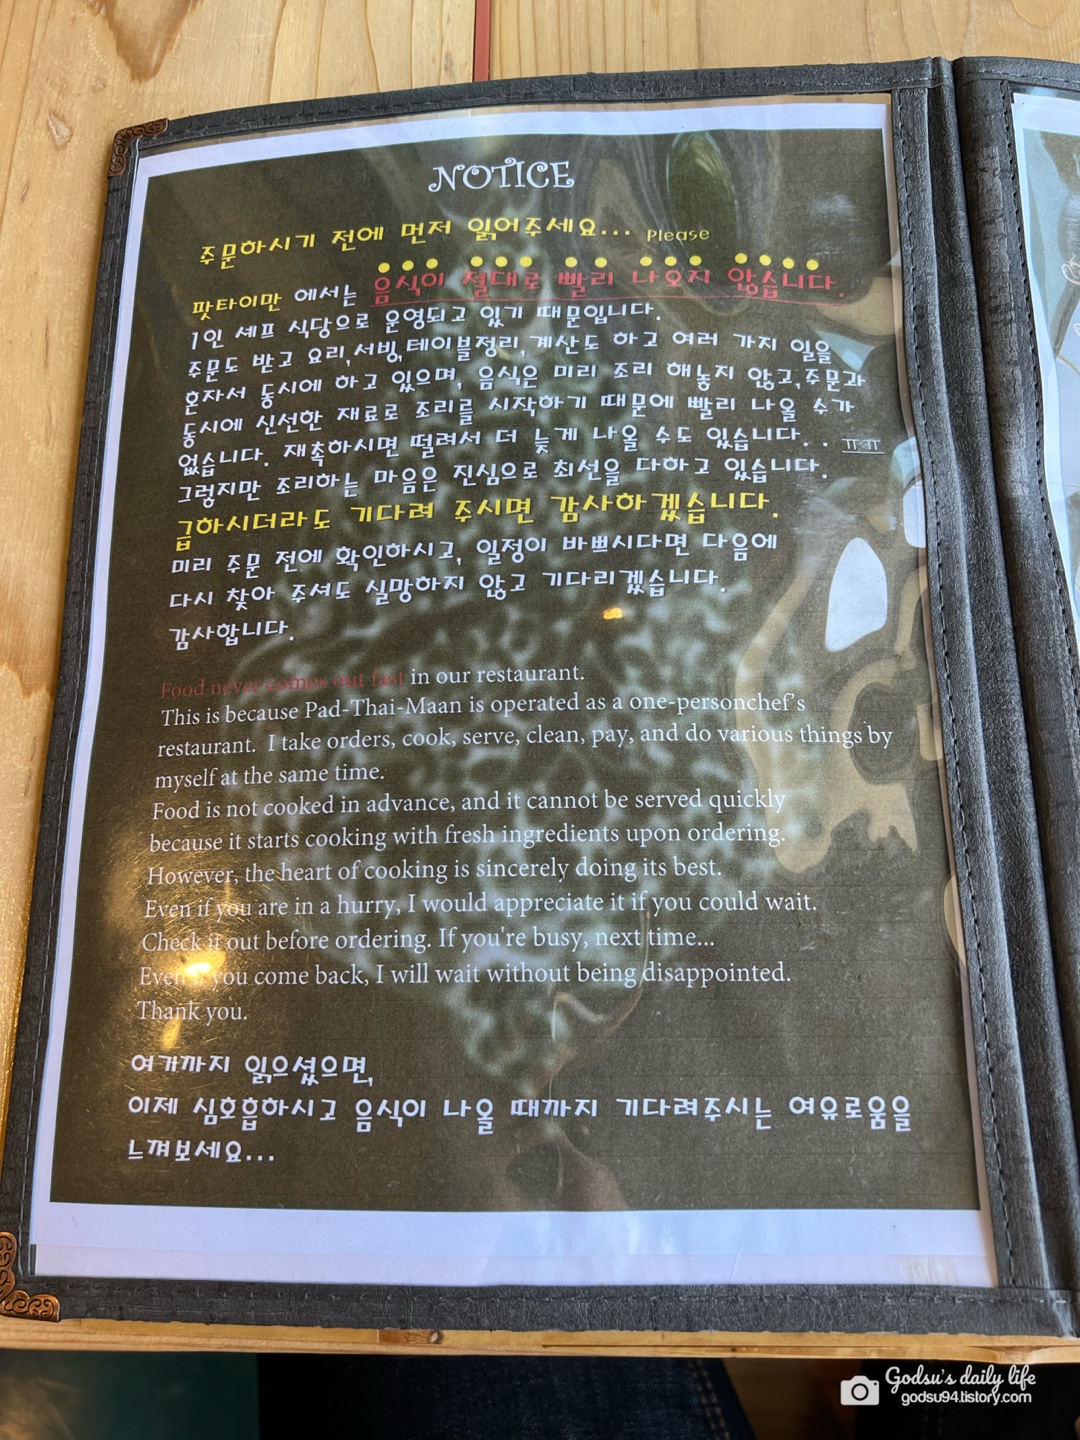 NOTICE
주문하시기 전에 먼저 읽어주세요... Please
팟타이만 에서는 음식이 절대로 빨리 나오지 않습니다.
1인 셰프 식당으로 운영되고 있기 때문입니다.
주문도 받고 요리,서빙,테이블정리,계산도 하고 여러 가지 일을
혼자서 동시에 하고 있으며, 음식은 미리 조리 해놓지 않고,주문과
동시에 신선한 재료로 조리를 시작하기 때문에 빨리 나올 수가
없습니다. 재촉하시면 떨려서 더 늦게 나올 수도 있습니다. . ㅠㅠ
그렇지만 조리하는 마음은 진심으로 최선을 다하고 있습니다.
급하시더라도 기다려 주시면 감사하겠습니다.
미리 주문 전에 확인하시고, 일정이 바쁘시다면 다음에
다시 찾아 주셔도 실망하지 않고 기다리겠습니다.
감사합니다.
Food never comes out fast in our restaurant.
This is because Pad-Thai-Maan is operated as a one-personchef's
restaurant. I take orders, cook, serve, clean, pay, and do various things by
myself at the same time.
Food is not cooked in advance, and it cannot be served quickly
because it starts cooking with fresh ingredients upon ordering.
However, the heart of cooking is sincerely doing its best.
Even if you are in a hurry, I would appreciate it if you could wait.
Check it out before ordering. If you're busy, next time...
Even if you come back, I will wait without being disappointed.
Thank you.
여기까지 읽으셨으면,
이제 심호흡하시고 음식이 나올 때까지 기다려주시는 여유로움을
느껴보세요...
Godsu's daily life
godsu94.tistory.com